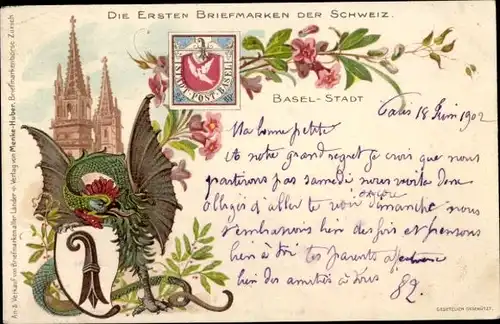 DIE ERSTEN BRIEFMARKEN DER SCHWEIZ.
STADT-POST-BASEL
BASEL-STADT
An- & Verkauf von Briefmarken aller Länder. Verlag von Menke-Huber, Briefmarkenbörse Zürich
Paris 18 Juin 1902
Ma bonne petite
A notre grand regret je crois que nous
partirons pas samedi nous
d'aller te voir dimanche nous
t'embrassons bien des fois et pensons
bien à toi tes parents
bien des amitiés à tous
GESETZLICH GESCHÜTZT.